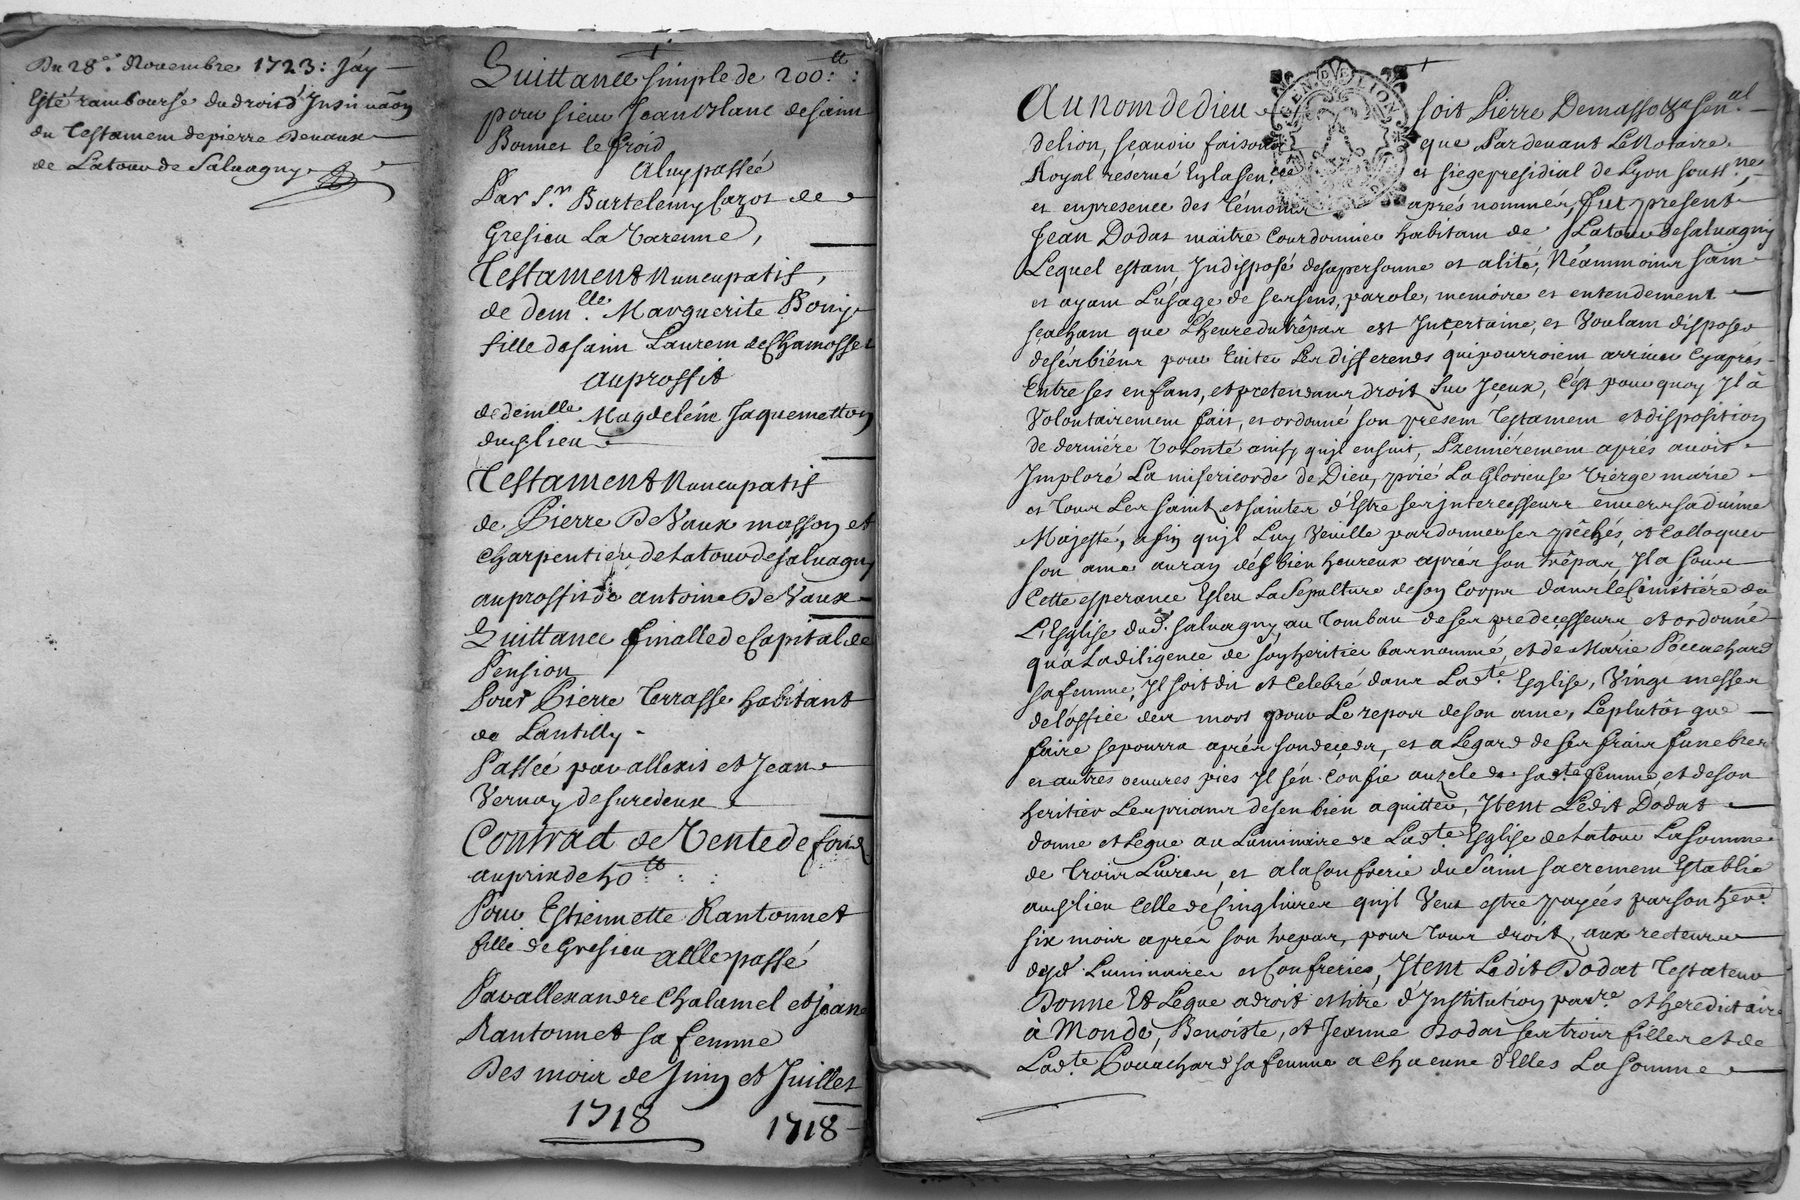 Du 28e. Novembre 1723: Jáy
Esté rambourse du droit d'Insinuaon
du Testament de pierre Devaux
de Latour de Saluagny
Quittance simple de 200:lt:
pour sieur Jean Blanc de saint
Bonnet le froid
a luy passée
Par Sr. Bartelemy Cazot de
Gresieu La Varenne,
Testament Nuncupatif,
de demlle. Marguerite
fille de saint Laurent de Chamosset
au proffit
de demlle Magdeléne Jaquemetton
dudt lieu
Testament Nuncupatif
de Pierre De Vaux masson et
Charpentier de Latour de saluagny
au proffit de antoine De Vaux
Quittance finalle de Capital de
Pension
Pour Pierre Terrasse habitant
de Lantilly
Passée par allexis et Jean
Vernay de surcieux
Contract de Vente de fond
au prix de 40lt::
Pour Estiennette Rantonnet
fille de Gresieu a Elle passé
Par allexandre Chalamel et Jeane
Rantonnet sa femme
Des mois de Juin et Juillet
1718 1718
Au nom de dieu soit Pierre Demassoz senal
de lion, sçauoir faisons que Pardeuant Le Notaire
Royal reserué En la sencée et siege presidial de Lyon soussne,
et en presence des Témoins aprés nommés, fut present
Jean Dodat maître Courdonnier habitant de Latour de saluagny
Lequel estant Indisposé de sa personne et alité, Néammoins sain
et ayant L'usage de ses sens, parole, memoire et entendement
sçachant que L'heure du trêpas est Inçertaine, et Voulant disposer
de sés biens pour Euiter Les differends qui pourroient arriuer Cy aprés
Entre ses enfans, et pretendans droit sur Jçeux, C'est pourquoy Il â
Volontairement fait, et ordonné son present Testament et disposition
de derniére Volonté ainsy qu'il ensuit, Premiérement aprés auoir
Imploré La misericorde de Dieu, prié La Glorieuse Viérge marie
et Tous Les saints et saintes d'Estre ses Intercesseurs enuers sa diuine
Majesté, afin qu'jl Luy Veuille pardonner ses pêchés, et Colloquer
son ame au rang dés bien heureux aprés son trêpas, Il a sous
Cette esperance Esleu La sepulture de son Corps dans le Cimitiére de
L'Eglise dudt. saluagny au Tombau de ses predecesseurs et ordonné
qu'a La diligence de son heritier bas nommé, et de Marie Pouachard
sa femme, Il soit dit et Celebré dans Ladte Eglise, Vingt messes
de l'office des mors pour Le repos de son ame, Le plutôs que
faire se pourra aprés son deçeds, et a L'egard de ses frais funebres
et autres oeuures pies Il s'én Confie au zele de sadte femme et de son
heritier Les priant de s'en bien aquitter, Item Ledit Dodat
donne et Legue au Luminaire de Ladte Eglise de Latour La somme
de Trois Liures, et a la Confrerie du saint sacrement Establie
audt lieu Celle de Cinq liures qu'jl Veut estre payées par son herr.
six mois aprés son trepas, pour Tous droits aux recteurs
desd Luminaires et Confreries, Item Ledit Dodat Testateur
Donne Et Legue a droit et titre d'Institution parre. et hereditaire
à Monde, Benoiste, et Jeanne Dodat ses trois filles et de
Ladte Pouachard sa femme a Chacune d'Elles La somme